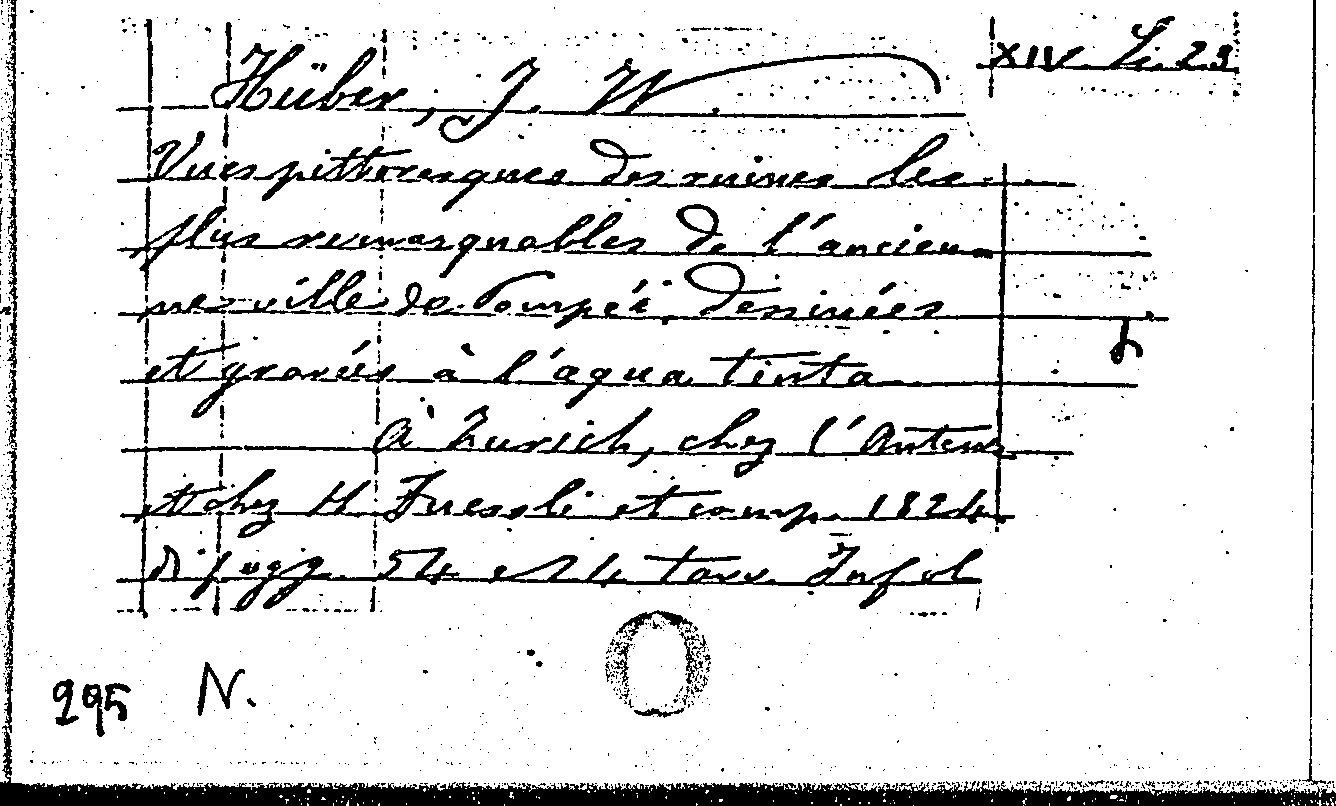 XIV. Li. 23
Hüber, J. W.
Vues pittoresques des ruines les
plus remarquables de l'ancien-
ne ville de Pompéi, dessinées
et gravées à l'aqua tinta
à Zurich, chez l'Auteur
et chez H. Fuessli et comp. 1824
di pagg. 54 e 24 tavv. In fol
295 N.